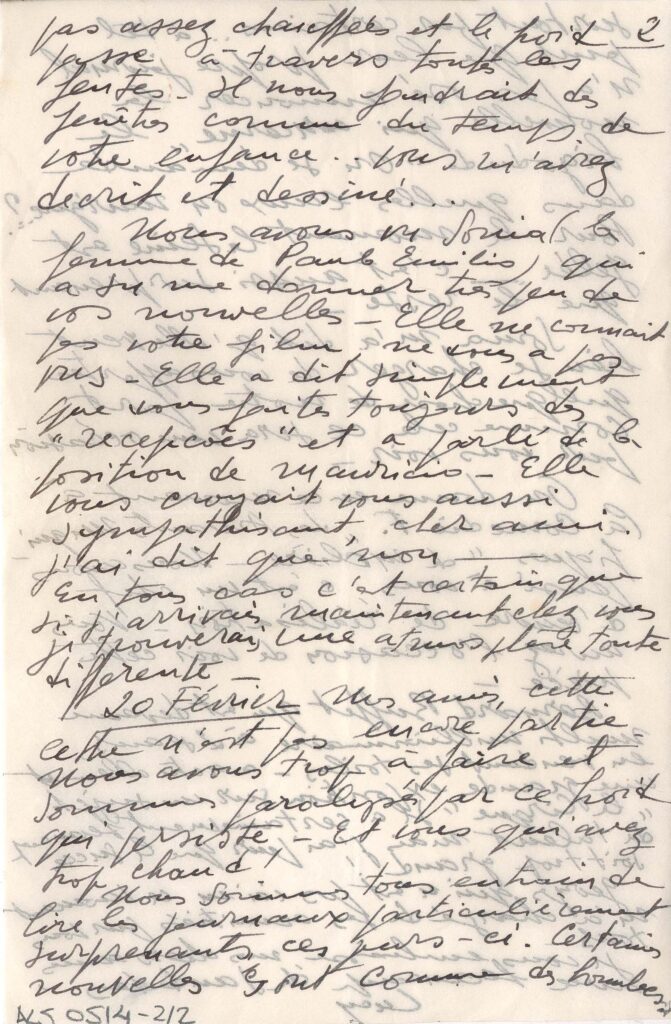 pas assez chauffées et le froid 2
passe à travers toutes les
fentes - Il nous faudrait des
fenêtres comme du temps de
votre enfance... vous m'aviez
decrit et dessiné...
Nous avons vu Sonia (la
femme de Paulo Emilio) qui
a su me donner très peu de
vos nouvelles - Elle ne connait
pas votre film, ne vous a pas
vus - Elle a dit simplement
que vous faites toujours des
"recepcões" et a parlé de la
position de Mauricio - Elle
vous croyait vous aussi
sympathisant cher ami.
J'ai dit que "non"
En tous cas c'est certain que
si j'arrivais maintenant chez vous
je trouverais une atmosphere toute
differente -
20 Février Mes amis, cette
lettre n'est pas encore partie -
Nous avons trop à faire et
sommes paralysés par ce froid
qui persiste - Et vous qui avez
trop chaud,
Nous sommes tous entrain de
lire les journaux particulièrement
surprenants ces jours-ci. Certaines
nouvelles sont comme des bombes
ALS 0514-2/2